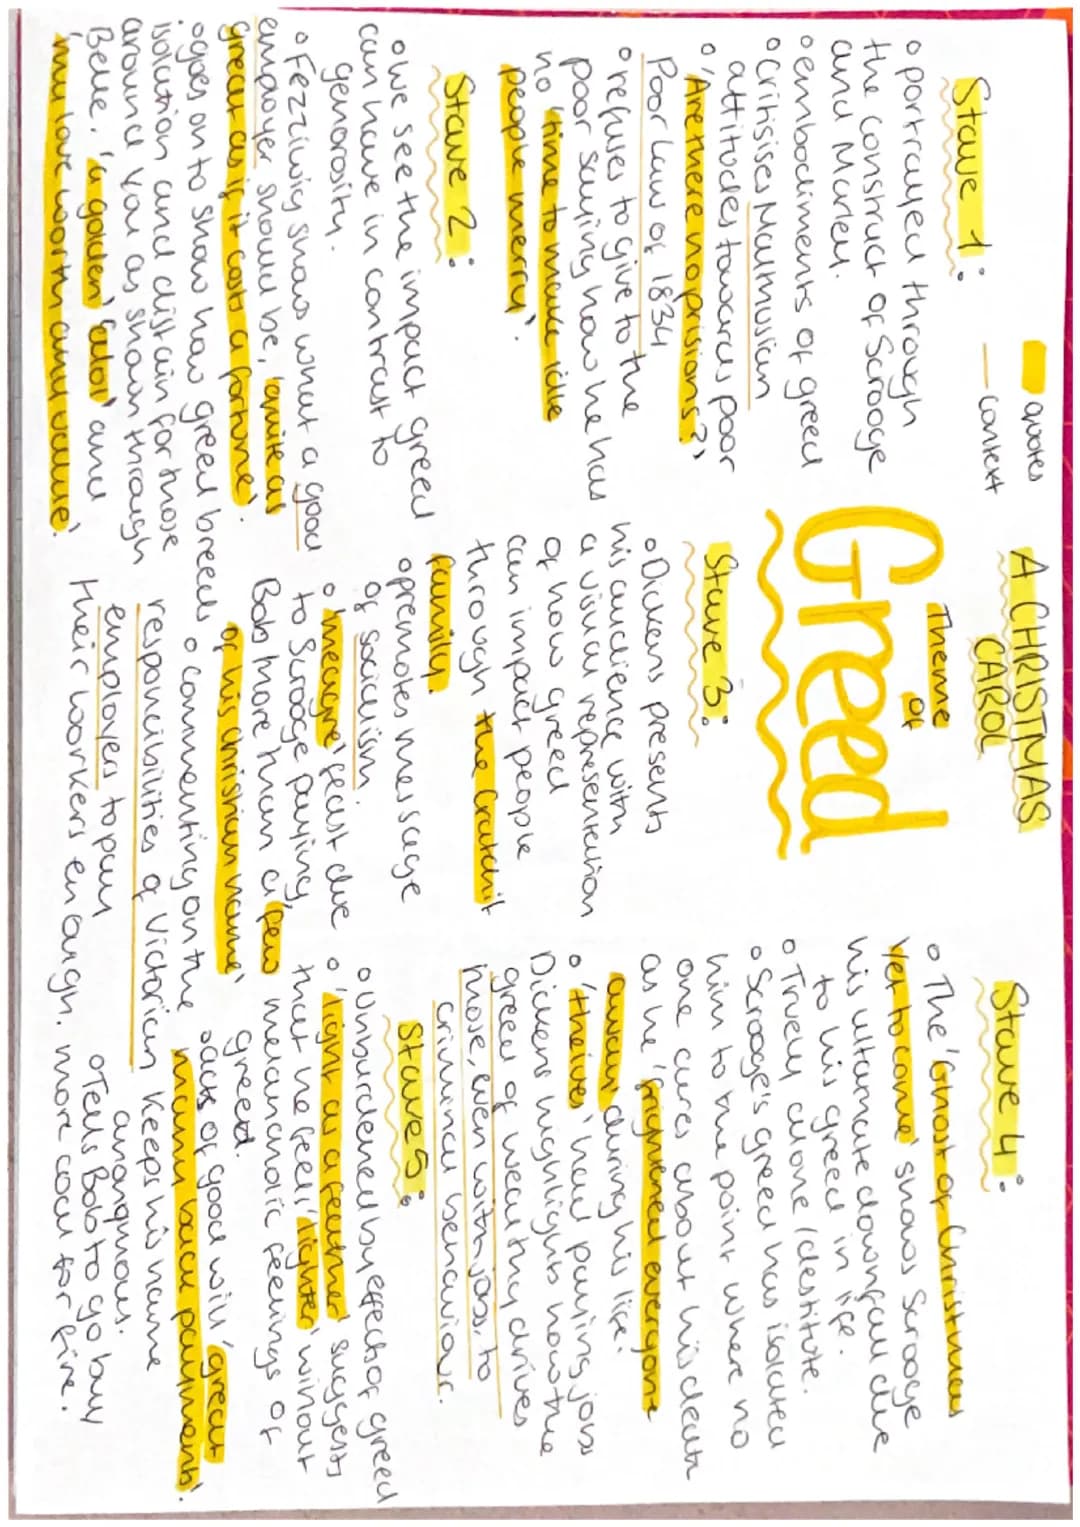 quotes
context
A CHRISTMAS
CAROL
Theme
of
Greed
Stave 1:
• portrayed through
the construct of Scrooge
and Marley.
• embodiments of greed
• critisises Malthusian
attitudes towards poor
• 'Are there no prisions?'
Poor Law of 1834
• refuses to give to the
poor saying how he has
no 'time to make idle
people merry'.
Stave 2:
• we see the impact greed
can have in contrast to
generosity.
• Fezziwig shows what a good
employer should be, 'quite as
great as if it costs a fortune'.
• goes on to show how greed breeds
isolation and distain for those
around you as shown through
Belle. 'a golden' 'idol' and
'my love worth and value'.
Stave 3:
• Dickens presents
his audience with
a visual representation
of how greed
can impact people
through the Cratchit
family.
• premotes message
of socialism.
• 'meagre' feast due
to Scrooge paying
Bob more than a 'few
of his christian name'
• commenting on the
responcibilities of Victorian
employers to pay
their workers enough.
Stave 4:
• The 'Ghost of Christmas
Yet to come' shows Scrooge
his ultimate downfall due
to his greed in life.
• Truely alone / destitute.
• Scrooge's greed has isolated
him to the point where no
one cares about his death
as he 'frightened everyone
away' during his life.
• 'theives' had paying jobs
Dickens highlights how the
greed of wealthy drives
those, even with jobs, to
criminal behaviour.
Stave 5:
• Unburdened by effects of greed
• 'light as a feather' suggests
that he feels 'lighter' without
melancholic feelings of
greed.
• acts of good will 'great
many back payments'.
Keeps his name
anonymous.
• Tells Bob to go buy
more coal for fire.